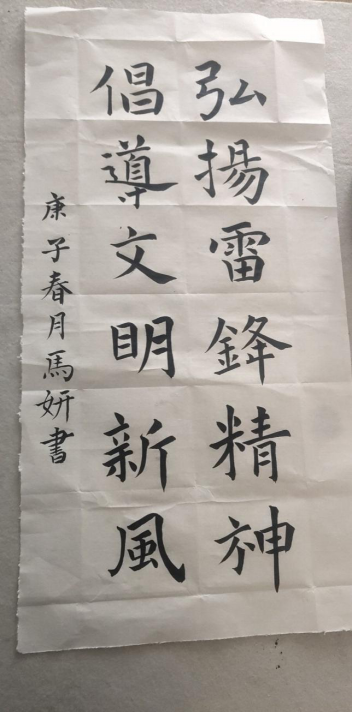 弘揚雷鋒精神
倡導文明新風
庚子春月馬妍書